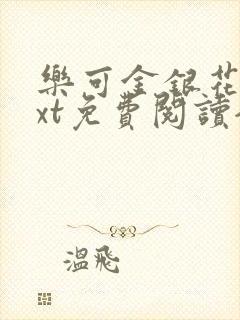 樂可金銀花
xt免費閱讀
溫飛